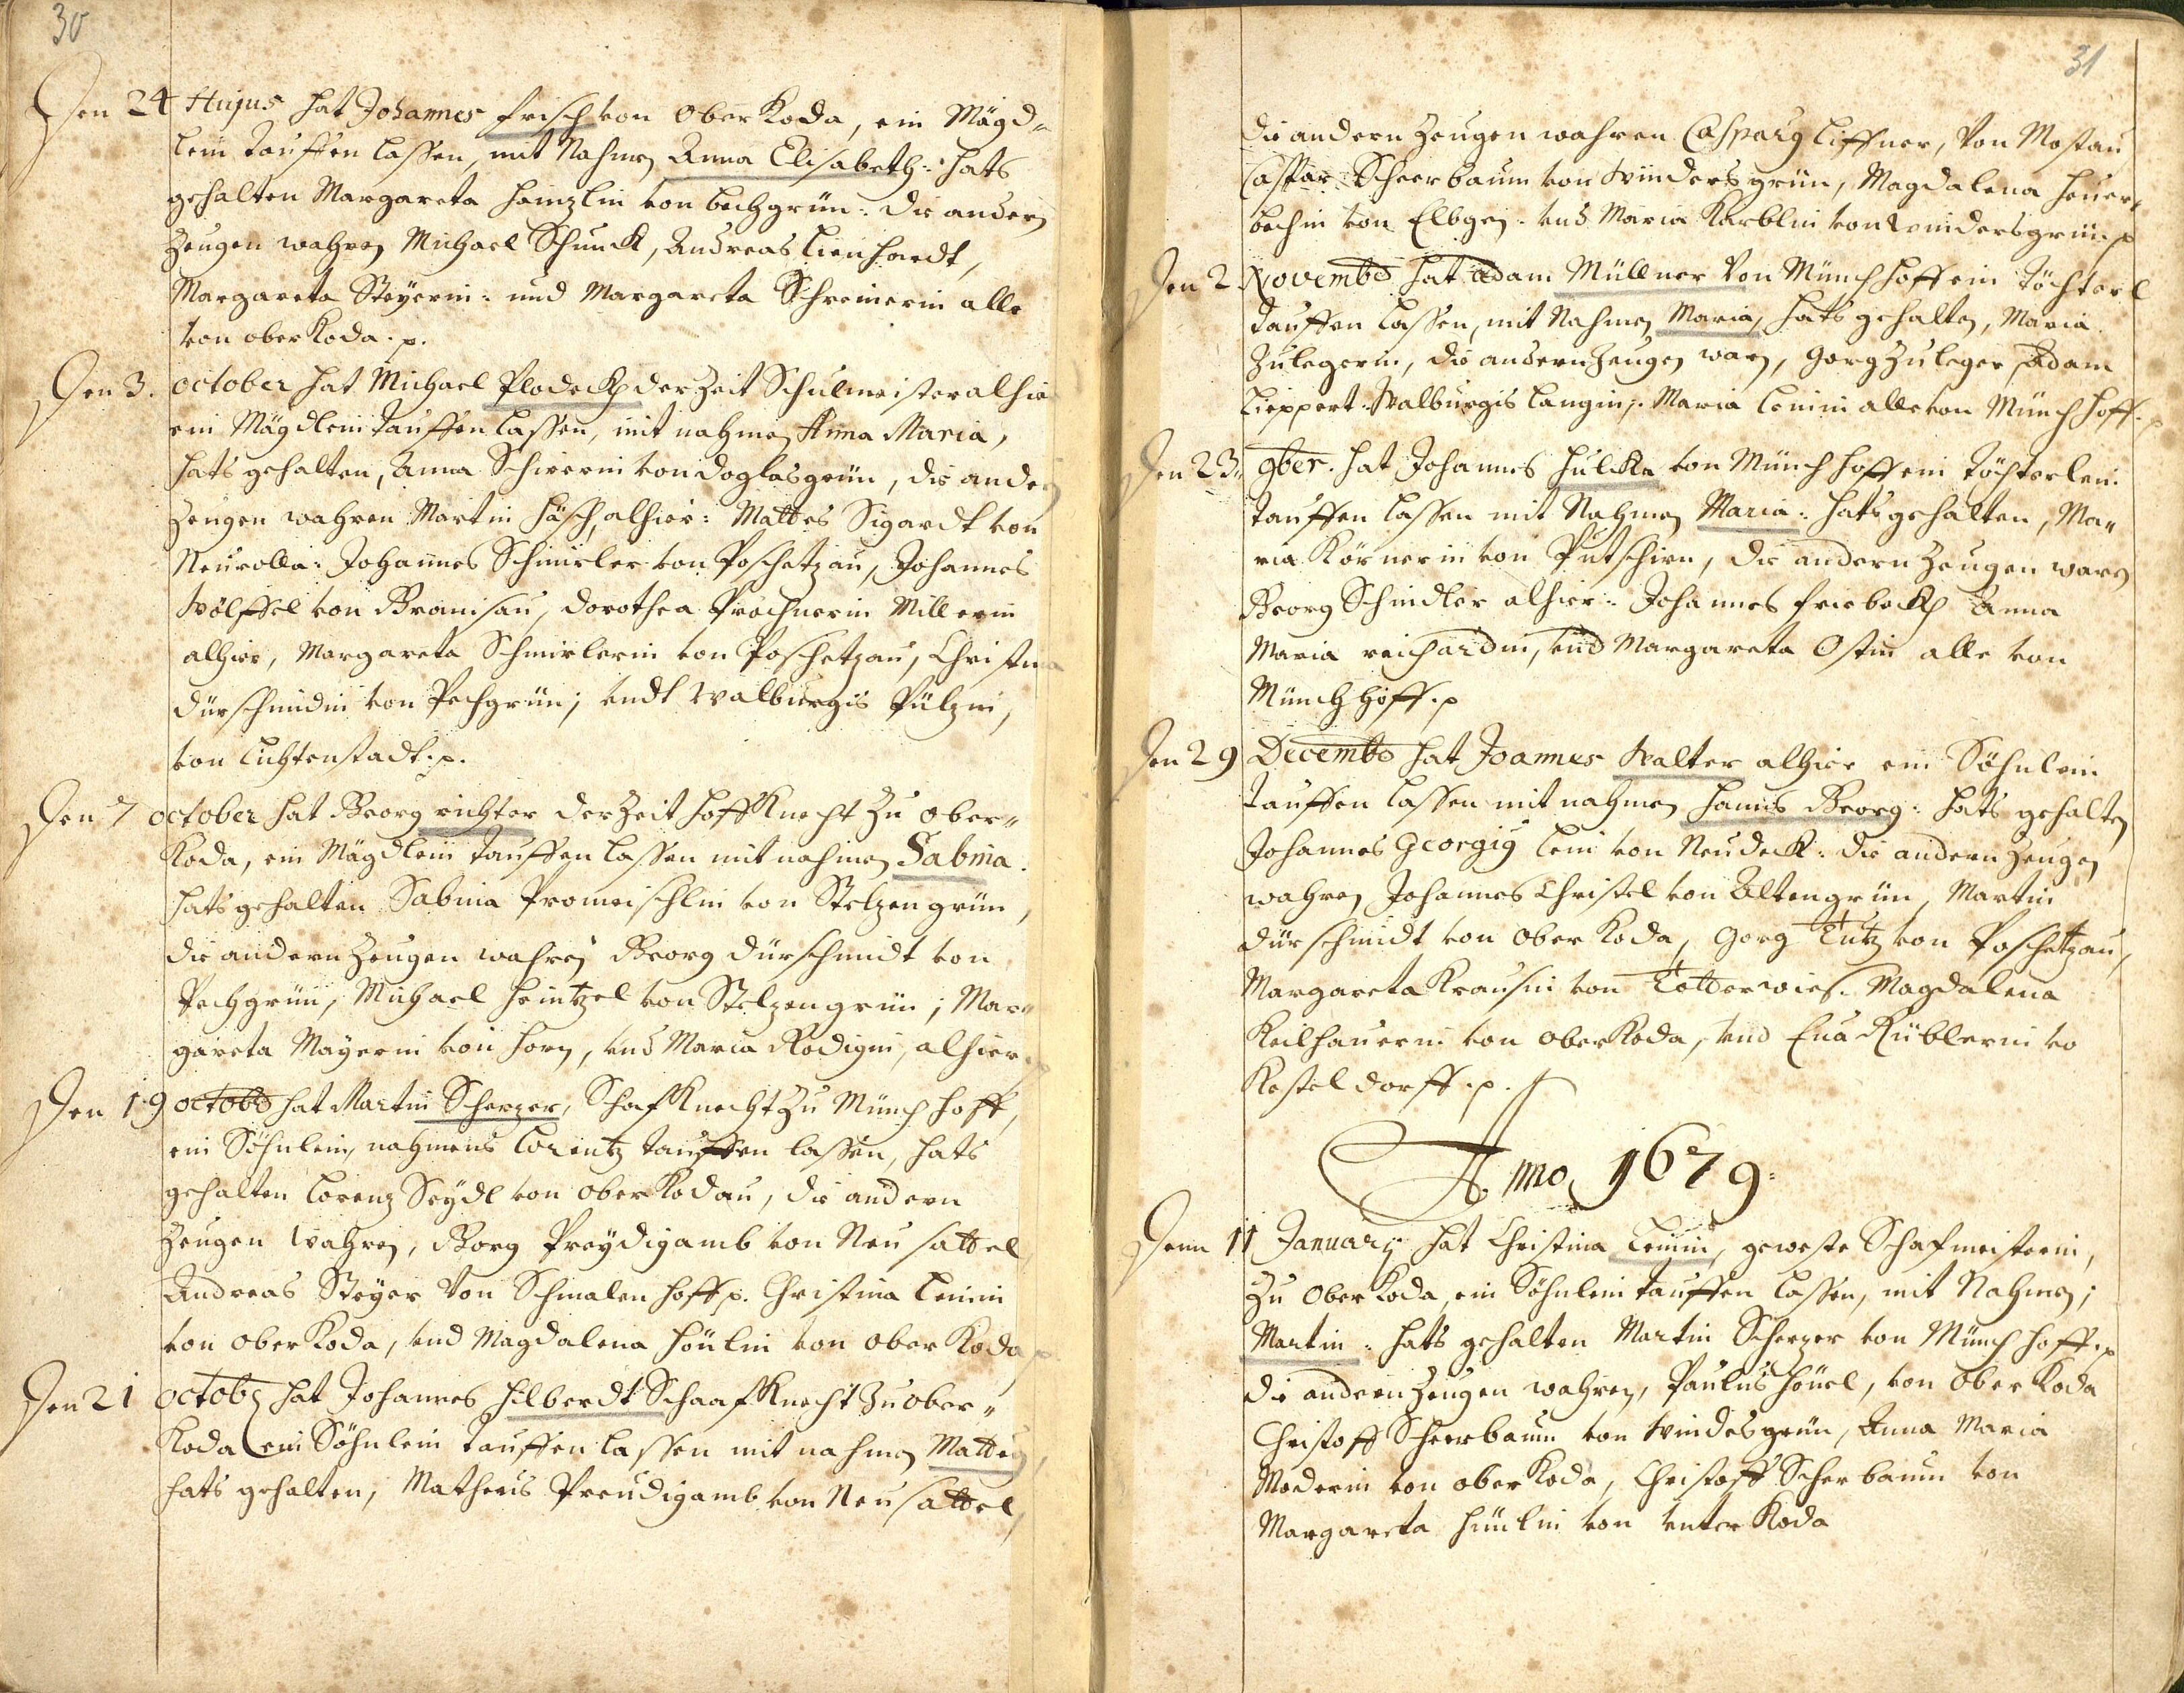 30
Den 24 Hujus hat Johannes Frisch von Ober Koda, ein Mägd„
lein tauffen lassen, mit Nahmen Anna Elisabeth: hats
gehalten Margareta Heinzlin von bechgrün: die andern
Zeugen wahren Michael Schunck, Andreas Lienhardt,
Margareta Steyerin: und Margareta Schreinerin alle
von ober Koda .p.
Den 3. october hat Michael Plodeckh der Zeit Schulmeister alhie
ein Mägdlein tauffen lassen, mit nahmen Anna Maria,
hats gehalten, Anna Schirerin von doglasgrün, die andern
Zeugen wahren Martin Häsch, alhier: Mattes Sigardt von
Neurolla: Johannes Schmirler von Poschetzau, Johannes
Wölffel von Branisau, Dorothea Prochnerin Millerin
alhier, Margareta Schmirlerin von Poschetzau, Christina
Dürschmidin von Pechgrün; undt Walburgis Pülzin,
von Lichtenstadt .p.
Den 7 october hat Georg richter der Zeit hoff Knecht zu ober„
Koda, ein Mägdlein tauffen lassen mit nahmen Sabina.
hats gehalten Sabina Promeischlin von Stelzengrün,
die andern Zeugen wahren Georg Dürschmidt von
Pechgrün, Michael Heintzel von Stelzengrün; Mar„
gareta Mayerin von Horn, und Maria Rodigin, alhier
Den 19 octobr hat Martin Scherzer, Schaf Knecht zu Münchhoff,
ein Söhnlein, nahmens Lorentz tauffen lassen, hats
gehalten Lorenz Seydl von ober Kodau, die andern
Zeugen wahren, Georg Preydigamb von Neusattel
Andreas Steyer von Schmalenhoff p. Christina Leinin
von ober Koda, und Magdalena Höülin von ober Koda p.
Den 21 octobr hat Johannes Hilberdt Schaaf Knecht zu ober„
Koda ein Söhnlein tauffen lassen mit nahmen Matteus,
hats gehalten, Matheus Preudigamb von Neusattel,
31
die andern Zeugen wahren Casparg Liffner, von Mostau
Casspar Scheerbaum von Windersgrün, Magdalena Heuer„
bachin von Elbgen. und Maria Karblin von Windersgrün p
Den 2 Novembr hat Adam Müllner von Münchhoff ein Töchterl
tauffen lassen, mit Nahmen Maria, hats gehalten, Maria
Zulegerin, die andern Zeugen waren, Gorg Zuleger, Adam
Lieppert. Walburgis Langin,. Maria Leinin alle von Münchhoff. p
Den 23„ 9ber. hat Johannes Hulcka von Münchhoff ein Töchterlein
tauffen lassen mit Nahmen Maria: hats gehalten, Ma„
ria Körnerin von Putschirn, die andern Zeugen waren
Georg Schindler alhier: Johannes Friebeckh Anna
Maria reichardin, und Margareta Ostin alle von
Münchhoff .p
Den 29 Decembr hat Joannes Walter alhier ein Söhnlein
tauffen lassen mit nahmen Hanns Georg: hats gehalten
Johannes Georgig Lein von Neudeck: die andern Zeugen
wahren Johannes Christel von Altengrün, Martin
Dürschmidt von ober Koda, Gorg Tutz von Poschetzau,
Margareta Krausin von Totterwies. Magdalena
Keilhauerin von ober Koda, und Eua Küblerin vo
Kesteldorff .p.
Anno 1679:
Denn 11 Januarij hat Christina Leinin, geweste Schafmeisterin,
zu ober Koda ein Söhnlein tauffen lassen, mit Nahmen;
Martin: hats gehalten Martin Scherzer von Münchhoff .p
die andern Zeugen wahren, Paulus Höuel, von ober Koda
Christoff Scheerbaum von Windesgrün, Anna Maria
Moderin von ober Koda, Christoff Scherbaum von
Margareta Hüülin von unter Koda